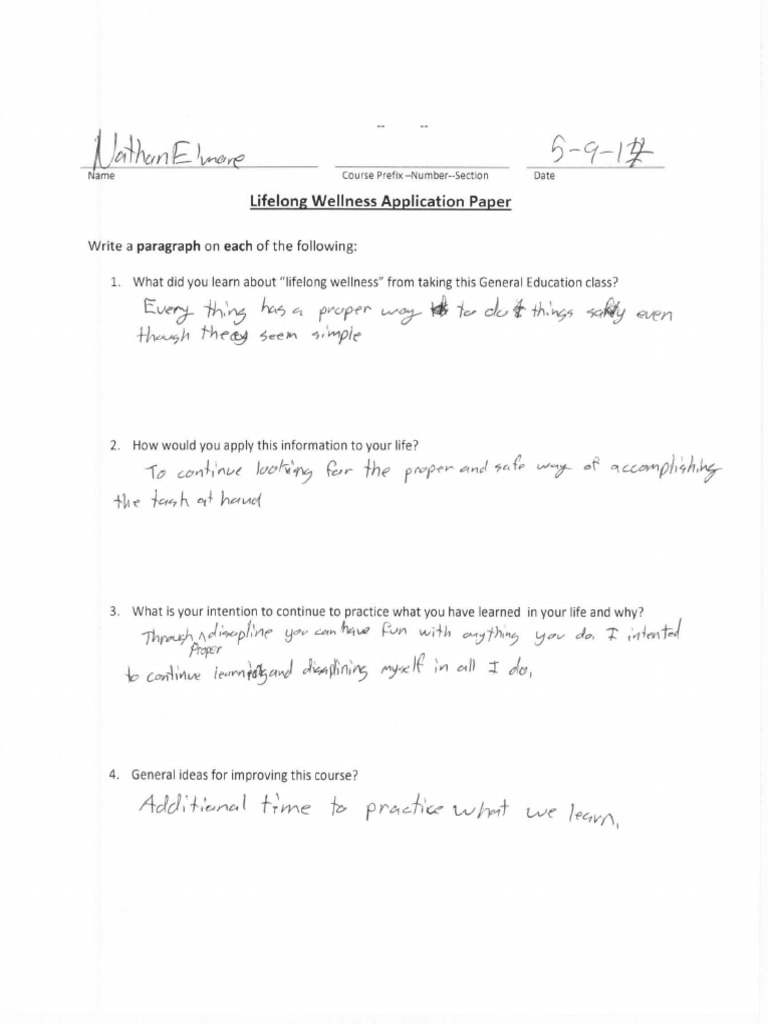 -- --
Nathan Elmore 5-9-17
Name Course Prefix –Number--Section Date
Lifelong Wellness Application Paper
Write a paragraph on each of the following:
1. What did you learn about “lifelong wellness” from taking this General Education class?
Every thing has a proper way to do things safly even
though they seem simple
2. How would you apply this information to your life?
To continue looking for the proper and safe way of accomplishing
the task at hand
3. What is your intention to continue to practice what you have learned in your life and why?
Through ^ discipline you can have fun with anything you do. I intented
Proper
to continue learning and disaplining myself in all I do.
4. General ideas for improving this course?
Additional time to practice what we learn.